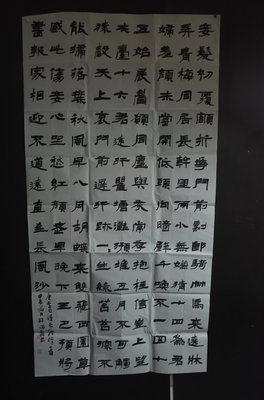 妾髮初覆額折花門前劇郎騎竹馬來遶牀
弄青梅同居長干里兩小無嫌猜十四為君
婦羞顏未嘗開低頭向暗壁千喚不一回十
五始展眉願同塵與灰常存抱柱信豈上望
夫臺十六君遠行瞿塘灩澦堆五月不可觸
猿聲天上哀門前遲行跡一一生綠苔苔深不
能掃落葉秋風早八月蝴蝶來雙飛西園草
感此傷妾心坐愁紅顏老早晚下三巴預將
書報家相迎不道遠直至長風沙